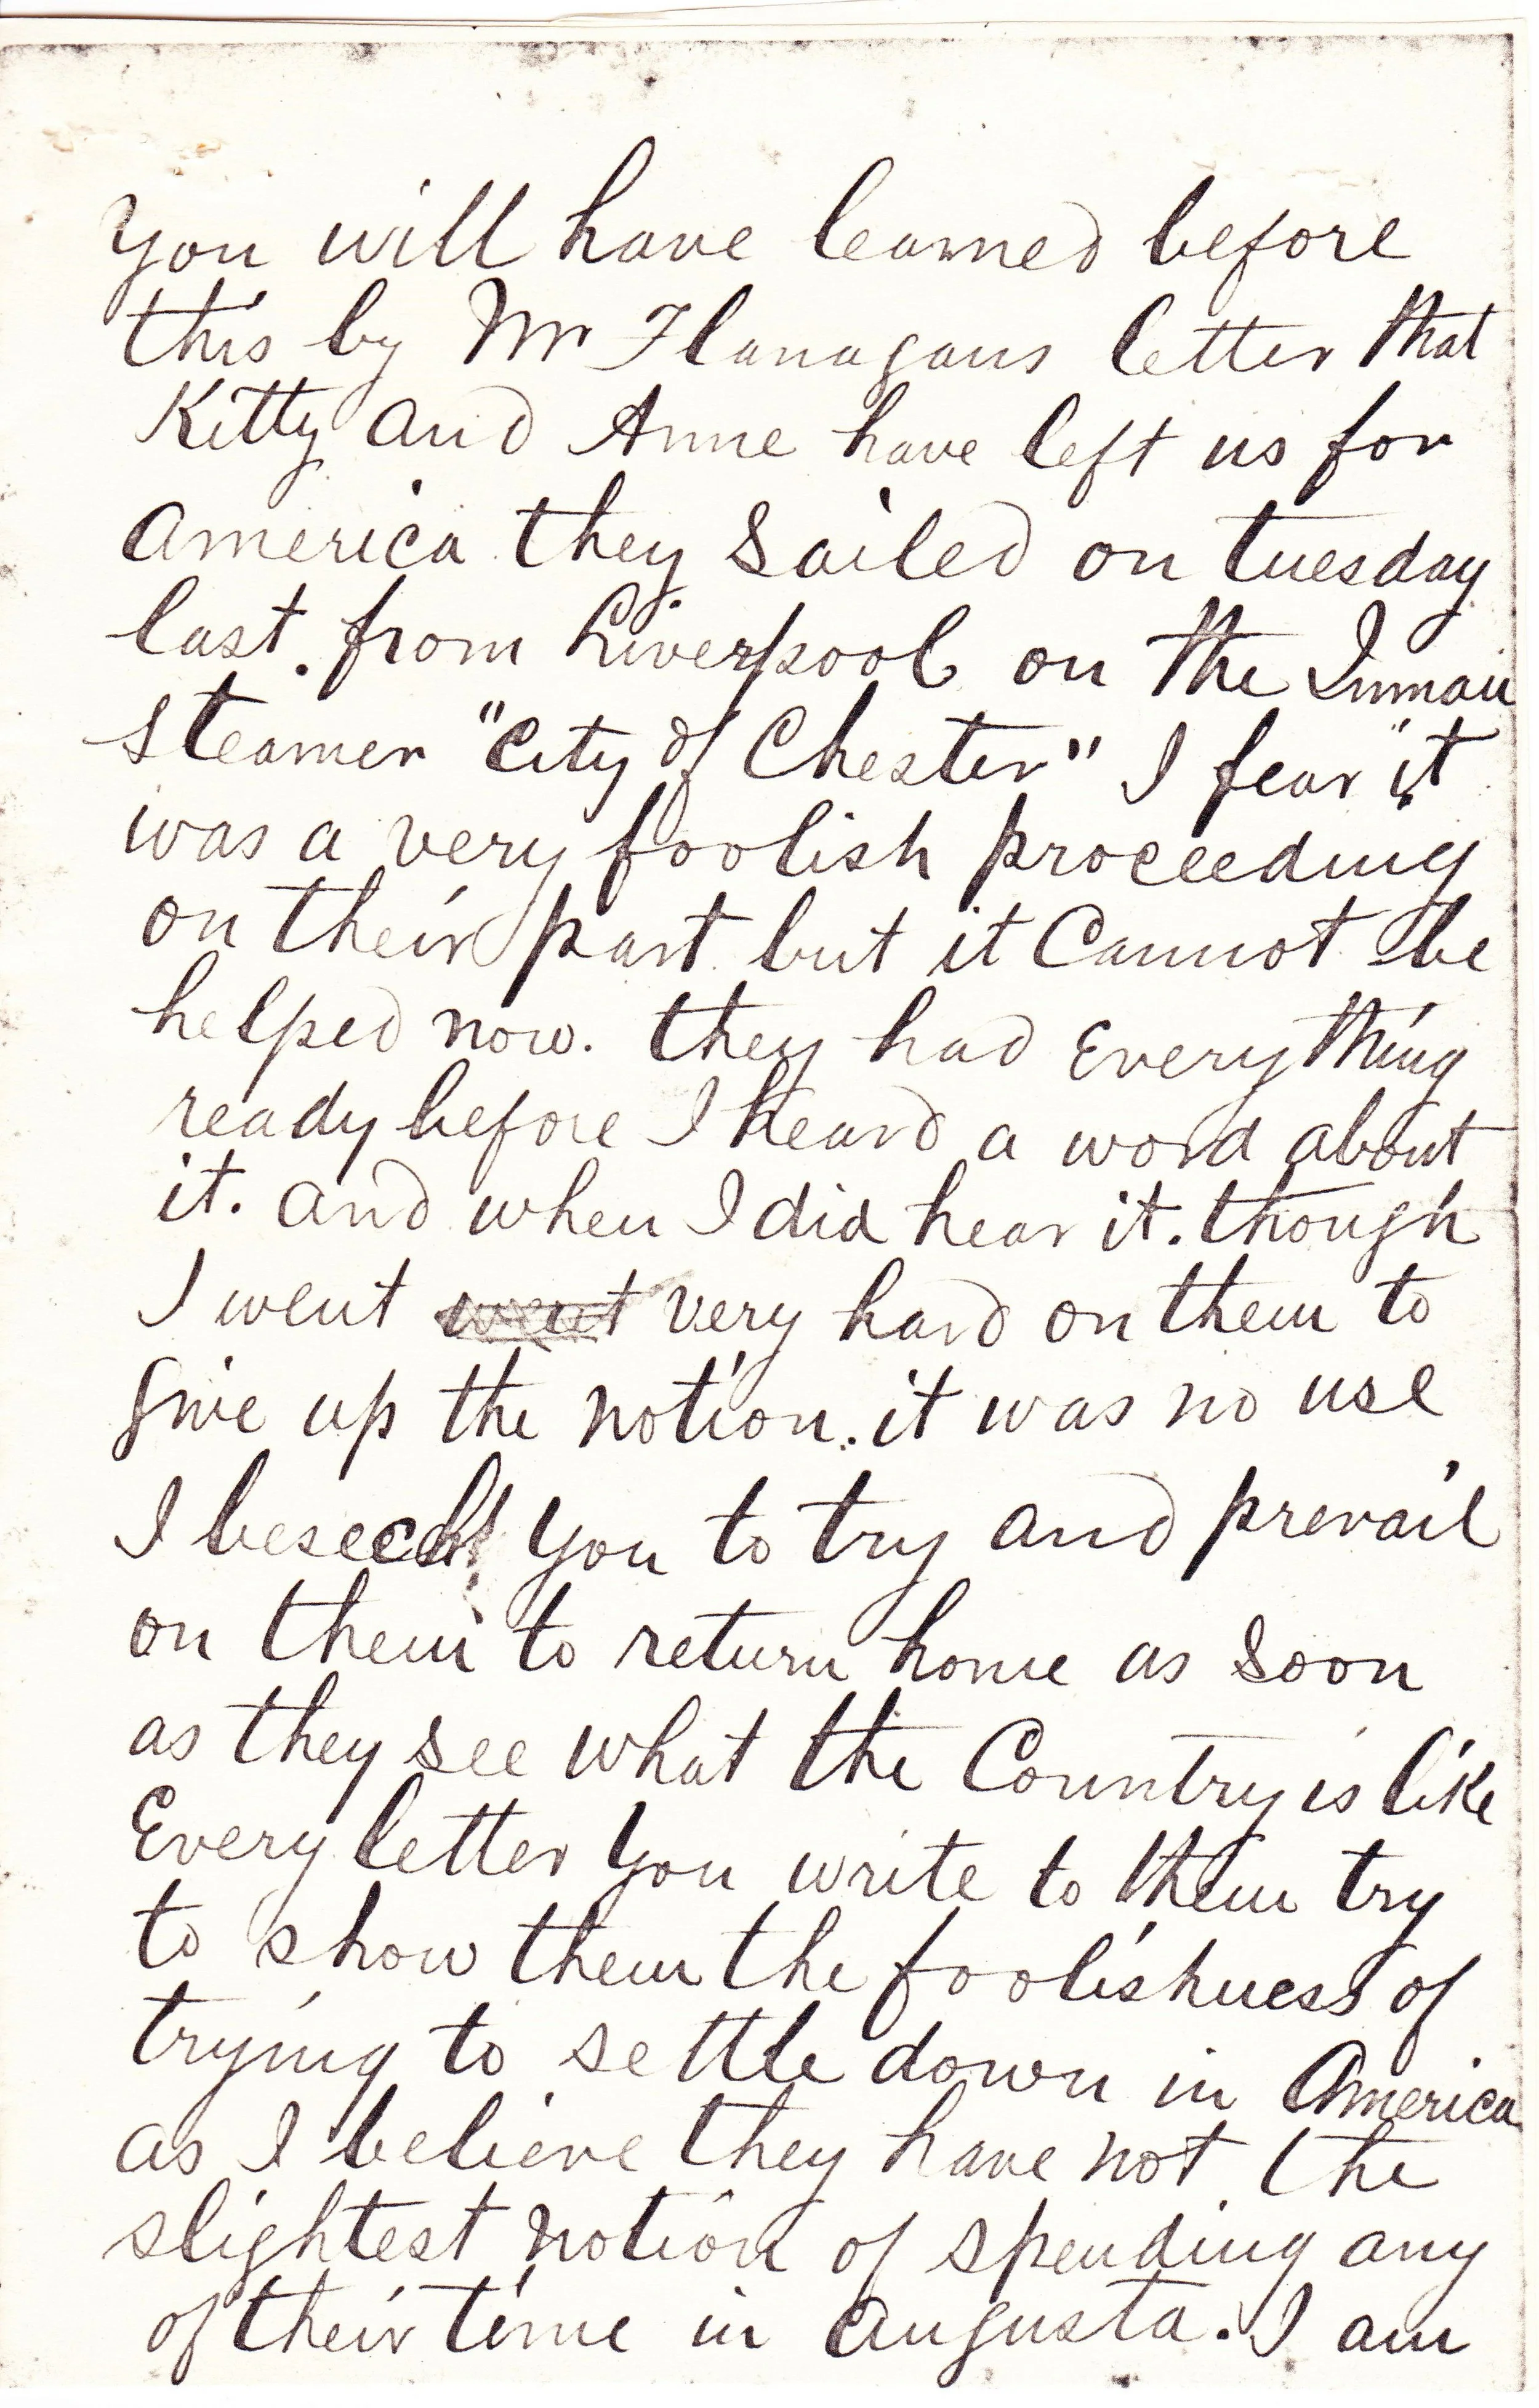 you will have learned before
this by Mr Flanagans letter that
Kitty and Anne have left us for
America they Sailed on tuesday
last. from Liverpool on the Inman
steamer "City of Chester" I fear it
was a very foolish proceeding
on their part but it Cannot be
helped now. they had Everything
ready before I heard a word about
it. and when I did hear it. though
I went went very hard on them to
give up the notion. it was no use
I beseech you to try and prevail
on them to return home as soon
as they see what the Country is like
Every letter you write to them try
to show them the foolishness of
trying to settle down in America
as I believe they have not the
slightest notion of spending any
of their time in Augusta. I am